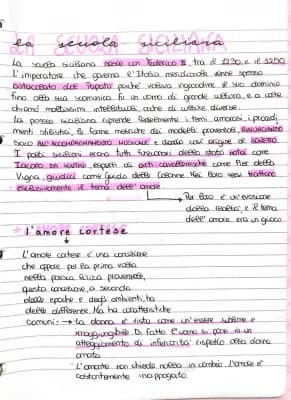 La scuola siciliana
La scuola siciliana nasce con Federico II, tra il 1230 e il 1250
L'imperatore che governa e' Italia meridionale venne spesso
ostacolato dal Papato poiché voleva ingrandire il suo dominio
fino alla sua scomunica. Fu un uomo di grande cultura, e a corte
chiamò moltissimi intellettuali, anche di culture diverse.
La poesia siciliana riprende fedelmente i temi amorosi, i procedi
menti stilistici, le forme metriche dai modelli provenzali, RINUNCIANDO
SOLO ALL'ACCOMPAGNAMENTO MUSICALE e dando così origine al SONETTO
I poeti siciliani erano tutti funzionari dello stato notai come
Iacopo da Lentini, esperti di arti cavalleresche come Pier della
Vigna, giudici come Guido delle Colonne. Nei loro versi trattano
esclusivamente il tema dell'amore.
Per loro è un'evasione
dalla realtà, e il tema
dell'amore era un gioco
L'amore cortese
L'amore cortese è una concezione
che appare per la prima volta
nella poesia lirica provenzale,
questa concezione, a seconda
delle epoche e degli ambienti, ha
delle differenze. Ma ha caratteristiche
comuni: → La donna è vista come un'essere sublime e
irraggiungibile. Di fatto l'uomo si pone in un
atteggiamento di inferiorità rispetto alla donna
amata.
L'amante non chiede nulla in cambio l'amore è
costantemente inappagato.